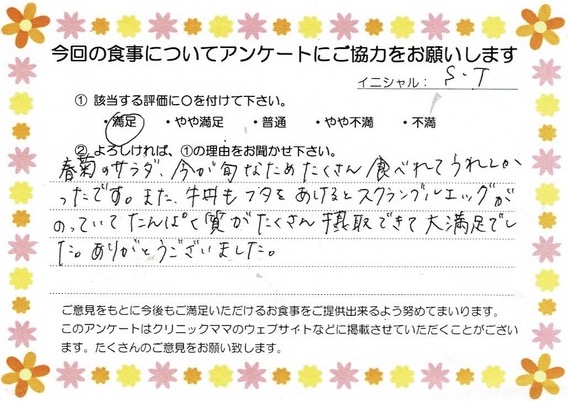 今回の食事についてアンケートにご協力をお願いします
イニシャル： S・T
① 該当する評価に〇を付けて下さい。
・満足 ・やや満足 ・普通 ・やや不満 ・不満
② よろしければ、①の理由をお聞かせ下さい。
春菊のサラダ、今が旬なためたくさん食べれてうれしか
ったです。また、牛丼もフタをあけるとスクランブルエッグが
のっていてたんぱく質がたくさん摂取できて大満足でし
た。ありがとうございました。
ご意見をもとに今後もご満足いただけるお食事をご提供出来るよう努めてまいります。
このアンケートはクリニックママのウェブサイトなどに掲載させていただくことがござい
ます。たくさんのご意見をお願い致します。